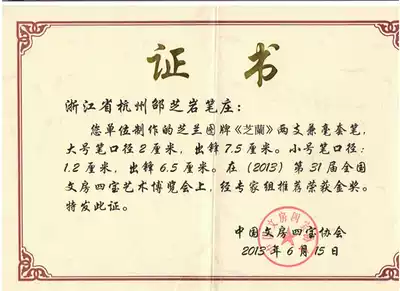 证书
浙江省杭州邵芝岩笔庄：
您单位制作的芝兰图牌《芝蘭》两支兼毫套笔，
大号笔口径2厘米，出锋7.5厘米。小号笔口径：
1.2厘米，出锋6.5厘米。在(2013)第31届全国
文房四宝艺术博览会上，经专家组推荐荣获金奖。
特发此证。
中国文房四宝协会
2013年6月15日